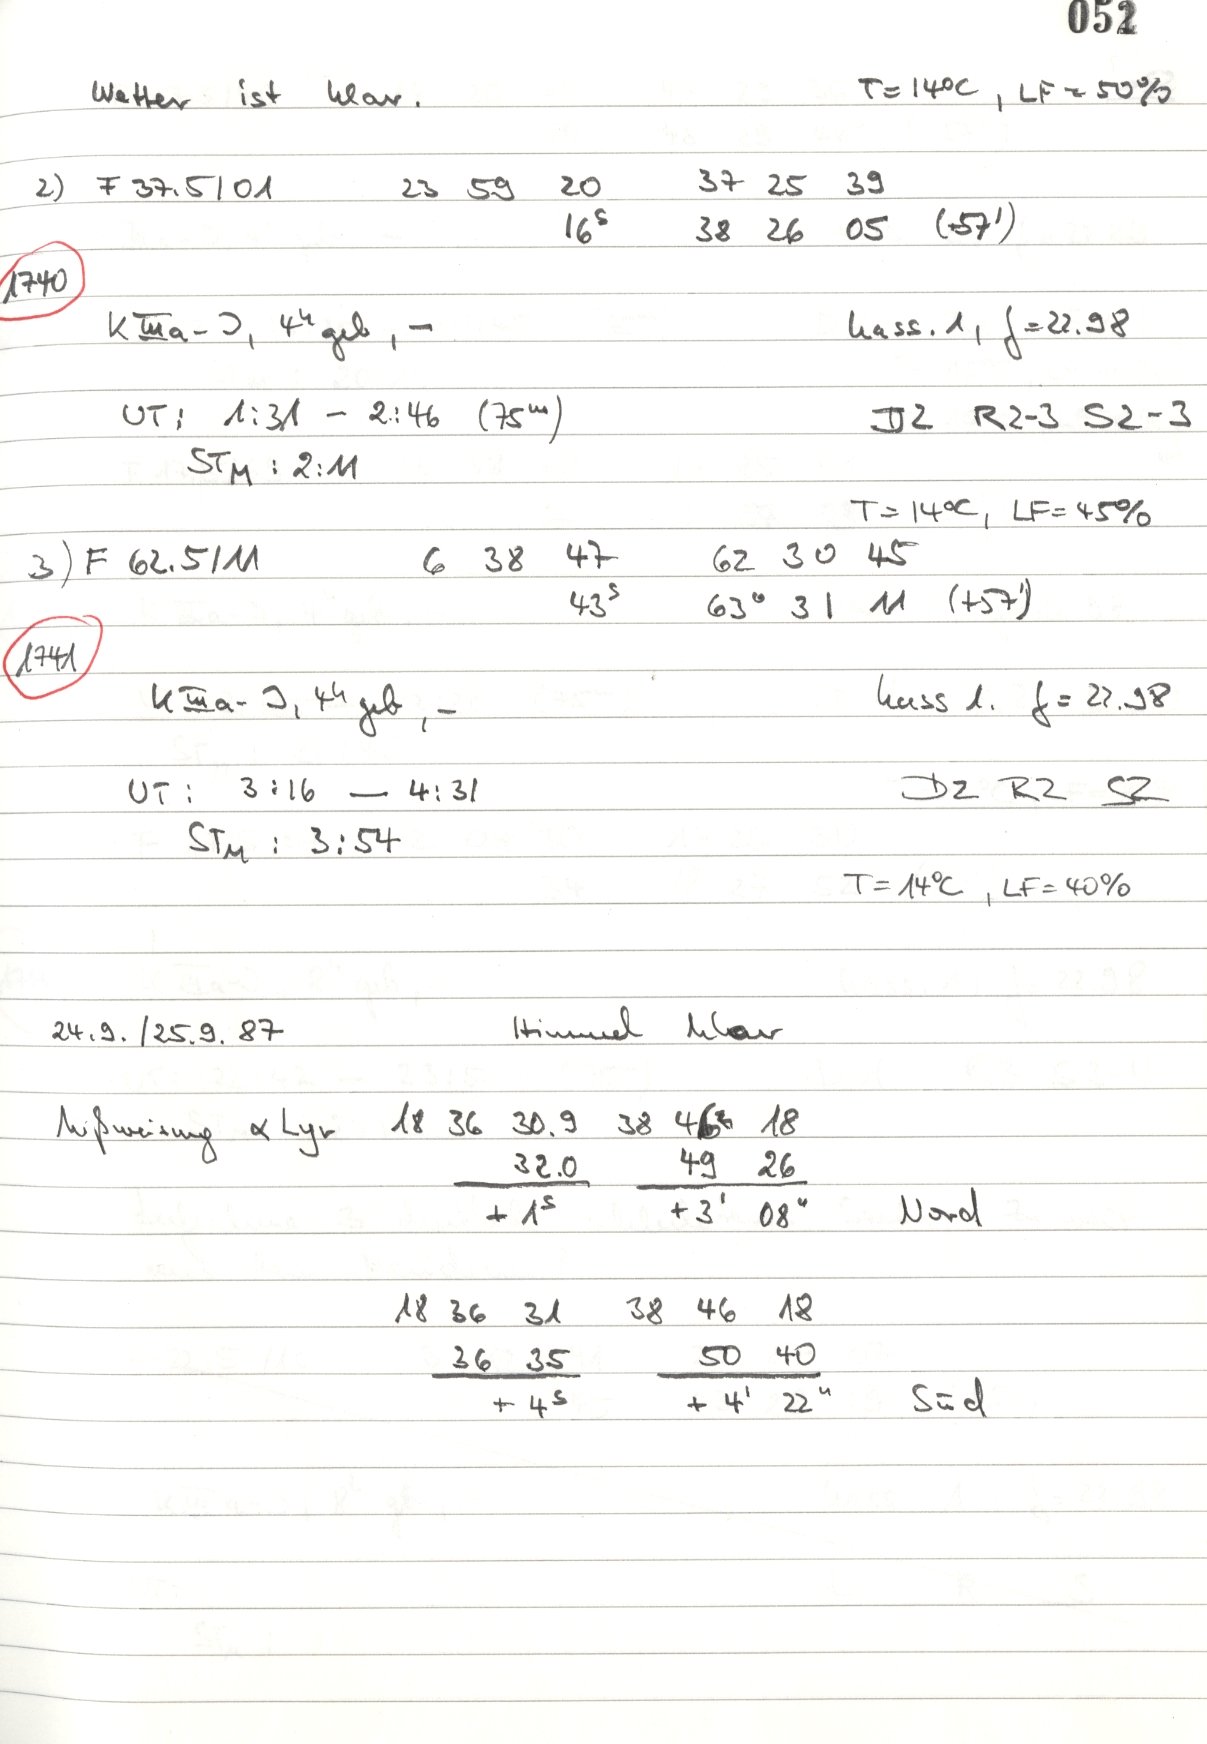 052
Wetter ist klar. T=14°C, LF=50%
2) F 37.5/01 23 59 20 37 25 39
16ˢ 38 26 05 (+57')
1740
K IIIa-J, 4ʰ geb, – Kass. 1, f=22.98
UT: 1:31 – 2:46 (75ᵐ) D2 R2-3 S2-3
STM : 2:11
T=14°C, LF=45%
3) F 62.5/11 6 38 47 62 30 45
43ˢ 63° 31 11 (+57')
1741
K IIIa-J, 4ʰ geb, – Kass 1. f=22.98
UT: 3:16 – 4:31 D2 R2 S2
STM : 3:54
T=14°C, LF=40%
24.9./25.9.87 Himmel klar
Mißweisung α Lyr 18 36 30.9 38 46 18
32.0 49 26
+ 1ˢ + 3' 08" Nord
18 36 31 38 46 18
36 35 50 40
+ 4ˢ + 4' 22" Süd